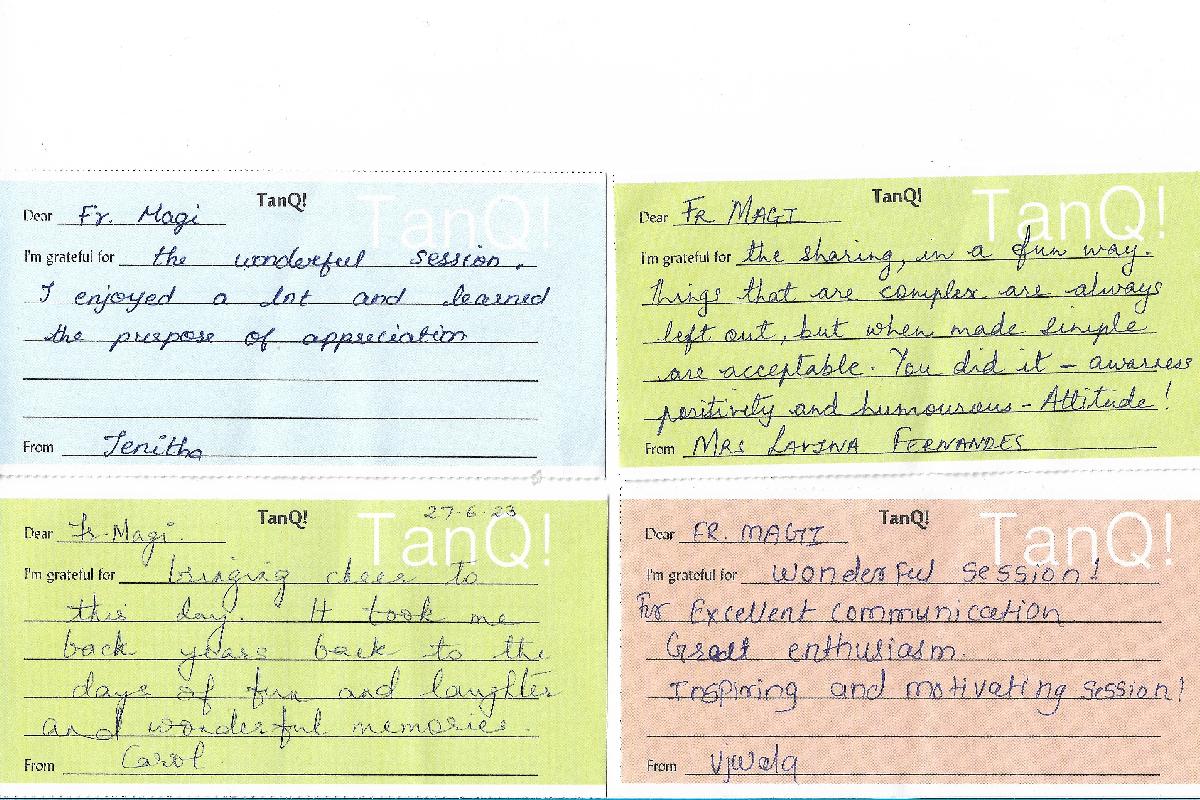 TanQ!
TanQ!
Dear Fr. Magi
I'm grateful for the wonderful session.
I enjoyed a lot and learned
the purpose of appreciation
From Jenitha
TanQ!
TanQ!
Dear FR MAGI
I'm grateful for the sharing, in a fun way.
Things that are complex are always
left out, but when made simple
are acceptable. You did it – awarness
positively and humourous - Attitude!
From MRS LAVINA FERNANDES
TanQ!
TanQ!
27-6-23
Dear Fr. Magi.
I'm grateful for bringing cheer to
this day. It took me
back years back to the
days of fun and laughter
and wonderful memories.
From Carol
TanQ!
TanQ!
Dear FR. MAGI
I'm grateful for Wonderful session!
For Excellent communication
Great enthusiasm.
Inspiring and motivating session!
From